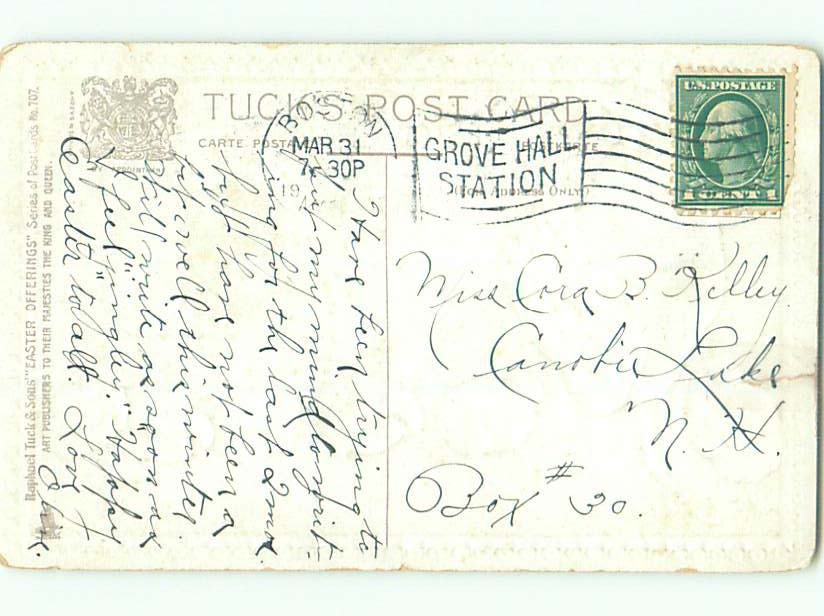 TUCK'S POST CARD
CARTE POSTALE
(FOR ADDRESS ONLY)
BY APPOINTMENT
BOSTON
MAR 31
7-30P
19
GROVE HALL
STATION
U.S. POSTAGE
1 CENT 1
Miss Cora B. Kelley
Canobie Lake
N. H.
Box # 30.
Have been trying to
my mind
ing for the last 2 mo.
but have not been a
bit well this winter.
Will write as soon as
I feel "jingley." Happy
Easter "to all. Love
Raphael Tuck & Sons' "EASTER OFFERINGS" Series of Post Cards No. 707.
ART PUBLISHERS TO THEIR MAJESTIES THE KING AND QUEEN.